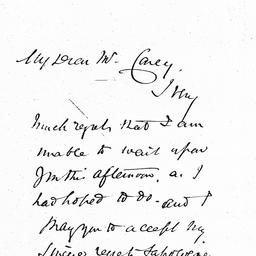 My dear Mr. Carey.
I very
much regret that I am
unable to wait upon
you this afternoon, as I
had hoped to do - and I
pray you to accept my
sincere regrets & apologies